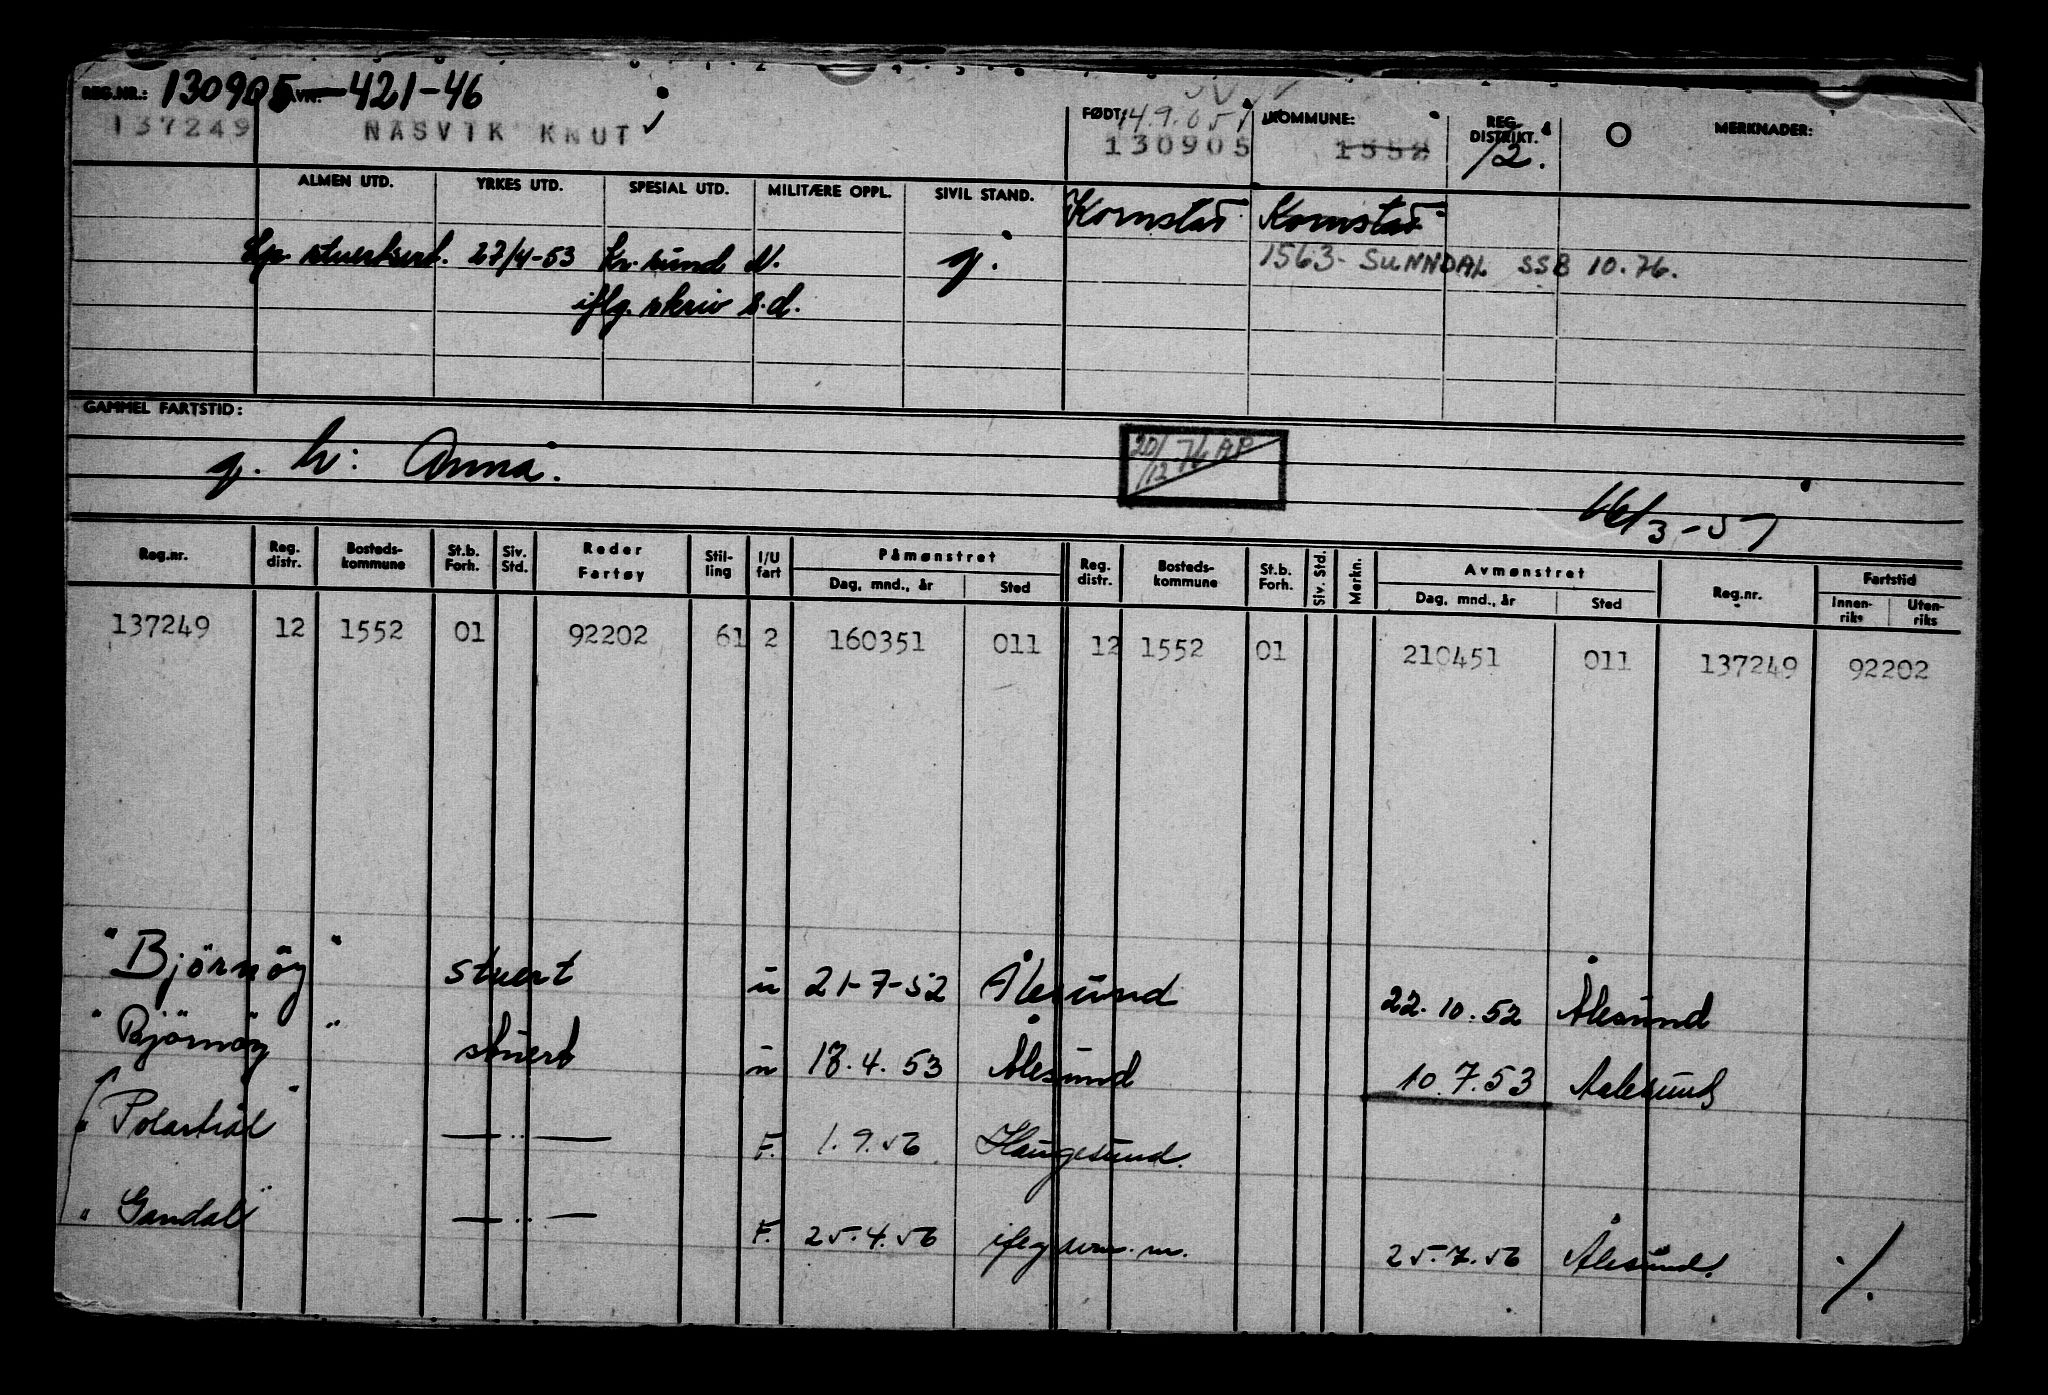 REG.NR.: 130905 NAVN: 421-46
137249 NASVIK KNUT ✓ FØDT: 14.9.05 KOMMUNE: REG. DISTRIKT. 12. O MERKNADER:
130905 1552
ALMEN UTD. YRKES UTD. SPESIAL UTD. MILITÆRE OPPL. SIVIL STAND. Kornstad Kornstad
stuertsert. 27/4-53 Kr. sund N. g. 1563- SUNNDAL SSB 10.76.
iflg. skriv s.d.
GAMMEL FARTSTID:
g. h: Anna. 20/12 76 AP
16/3-51
Reg.nr. Reg. distr. Bosteds- kommune St.b. Forh. Siv. Std. Reder Fartøy Stil- ling I/U fart Påmønstret Reg. distr. Bosteds- kommune St.b. Forh. Siv. Std. Merkn. Avmønstret Reg.nr. Fartstid
Dag, mnd., år Sted Dag, mnd., år Sted Innen- riks Uten- riks
137249 12 1552 01 92202 61 2 160351 011 12 1552 01 210451 011 137249 92202
"Björnöy" stuert u 21-7-52 Ålesund 22.10.52 Ålesund
"Björnöy" stuert u 18.4.53 Ålesund 10.7.53 Aalesund
"Polartrål" — " — F. 1.9.56 Haugesund.
"Gandal" — " — F. 25.4.56 25.7.56 Ålesund. /.